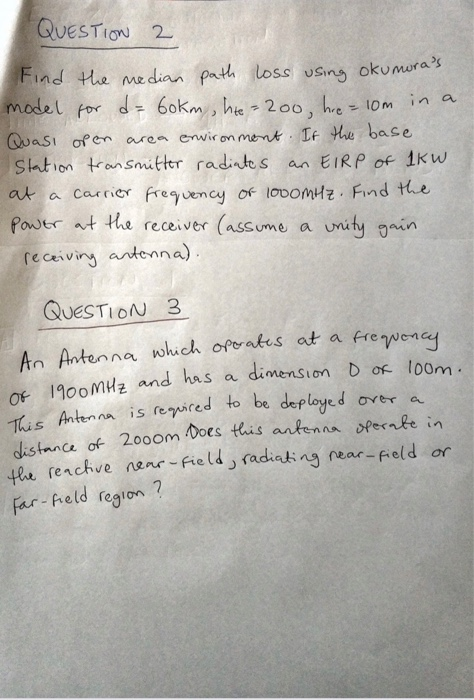 QUESTION 2
Find the median path loss using okumura's
model for d = 60km, hte = 200, hre = 10m in a
Quasi open area environment. If the base
Station transmitter radiates an EIRP of 1KW
at a carrier frequency of 1000MHz. Find the
Power at the receiver (assume a unity gain
receiving antenna).
QUESTION 3
An Antenna which operates at a frequency
of 1900MHz and has a dimension D of 100m.
This Antenna is required to be deployed over a
distance of 2000m. Does this antenna operate in
the reactive near-field, radiating near-field or
Far-field region?